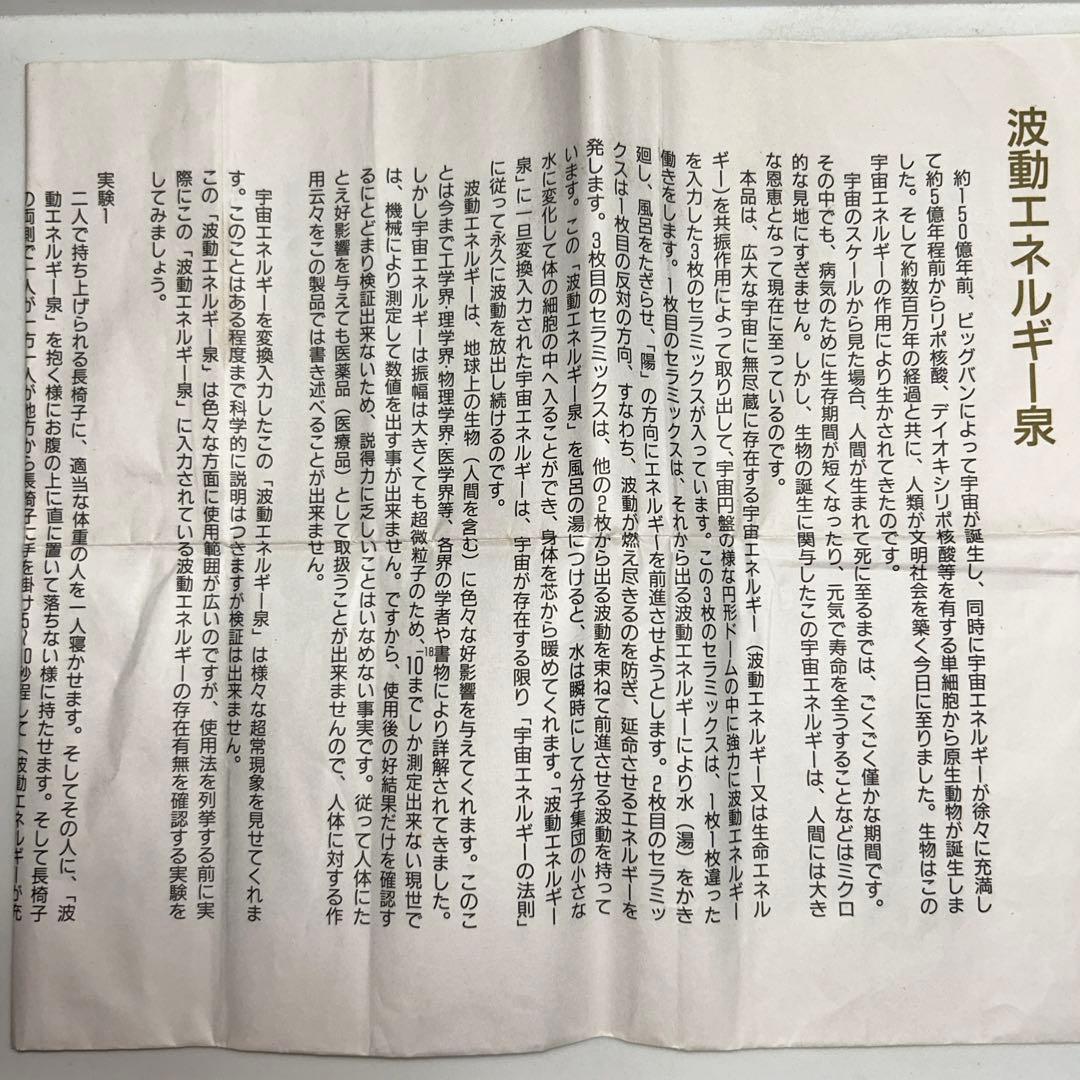 波動エネルギー泉
約150億年前、ビッグバンによって宇宙が誕生し、同時に宇宙エネルギーが徐々に充満し
て約5億年程前からリポ核酸、デイオキシリポ核酸等を有する単細胞から原生動物が誕生しま
した。そして約数百万年の経過と共に、人類が文明社会を築く今日に至りました。生物はこの
宇宙エネルギーの作用により生かされてきたのです。
宇宙のスケールから見た場合、人間が生まれて死に至るまでは、ごくごく僅かな期間です。
その中でも、病気のために生存期間が短くなったり、元気で寿命を全うすることなどはミクロ
的な見地にすぎません。しかし、生物の誕生に関与したこの宇宙エネルギーは、人間には大き
な恩恵となって現在に至っているのです。
本品は、広大な宇宙に無尽蔵に存在する宇宙エネルギー（波動エネルギー又は生命エネル
ギー）を共振作用によって取り出して、宇宙円盤の様な円形ドームの中に強力に波動エネルギー
を入力した3枚のセラミックスが入っています。この3枚のセラミックスは、1枚1枚違った
働きをします。1枚目のセラミックスは、それから出る波動エネルギーにより水（湯）をかき
廻し、風呂をたぎらせ、「陽」の方向にエネルギーを前進させようとします。2枚目のセラミッ
クスは1枚目の反対の方向、すなわち、波動が燃え尽きるのを防ぎ、延命させるエネルギーを
発します。3枚目のセラミックスは、他の2枚から出る波動を束ねて前進させる波動を持って
います。この「波動エネルギー泉」を風呂の湯につけると、水は瞬時にして分子集団の小さな
水に変化して体の細胞の中へ入ることができ、身体を芯から暖めてくれます。「波動エネルギー
泉」に一旦変換入力された宇宙エネルギーは、宇宙が存在する限り「宇宙エネルギーの法則」
に従って永久に波動を放出し続けるのです。
波動エネルギーは、地球上の生物（人間を含む）に色々な好影響を与えてくれます。このこ
とは今まで工学界・理学界・物理学界・医学界等、各界の学者や書物により詳解されてきました。
しかし宇宙エネルギーは振幅は大きくても超微粒子のため、10⁻¹⁸までしか測定出来ない現世で
は、機械により測定して数値を出す事が出来ません。ですから、使用後の好結果だけを確認す
るにとどまり検証出来ないため、説得力に乏しいことはいなめない事実です。従って人体にた
とえ好影響を与えても医薬品（医療品）として取扱うことが出来ませんので、人体に対する作
用云々をこの製品では書き述べることが出来ません。
宇宙エネルギーを変換入力したこの「波動エネルギー泉」は様々な超常現象を見せてくれま
す。このことはある程度まで科学的に説明はつきますが検証は出来ません。
この「波動エネルギー泉」は色々な方面に使用範囲が広いのですが、使用法を列挙する前に実
際にこの「波動エネルギー泉」に入力されている波動エネルギーの存在有無を確認する実験を
してみましょう。
実験1
二人で持ち上げられる長椅子に、適当な体重の人を一人寝かせます。そしてその人に、「波
動エネルギー泉」を抱く様にお腹の上に直に置いて落ちない様に持たせます。そして長椅子
の両側で一人が一方一人が他方から長椅子に手を掛け5～10秒程して（波動エネルギーが充